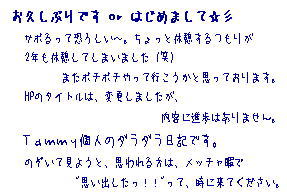 お久しぶりです or はじめまして☆彡
サボるって恐ろしい～。ちょっと休憩するつもりが
2年も休憩してしまいました（笑）
またボチボチやって行こうかと思っております。
HPのタイトルは、変更しましたが、
内容に進歩はありません。
Tammy個人のダラダラ日記です。
のぞいて見ようと、思われる方は、メッチャ暇で
"思い出したっ！！"って、時に来てください。